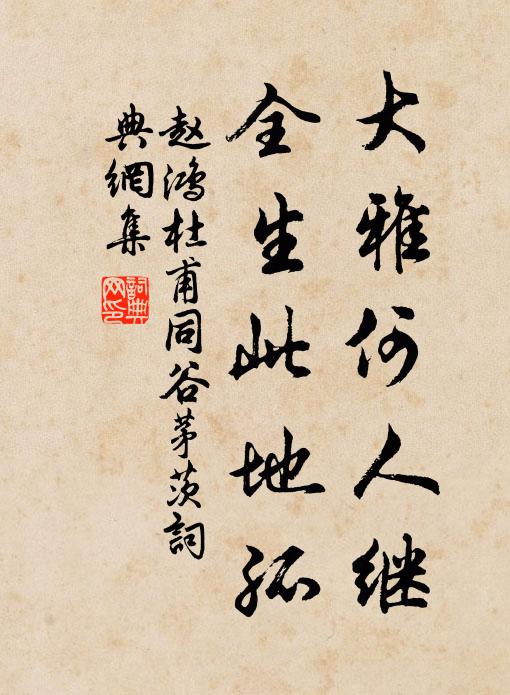 大雅何人继
全生此地孤
赵鸿杜甫同谷茅茨詞
典網集
詞典
网印